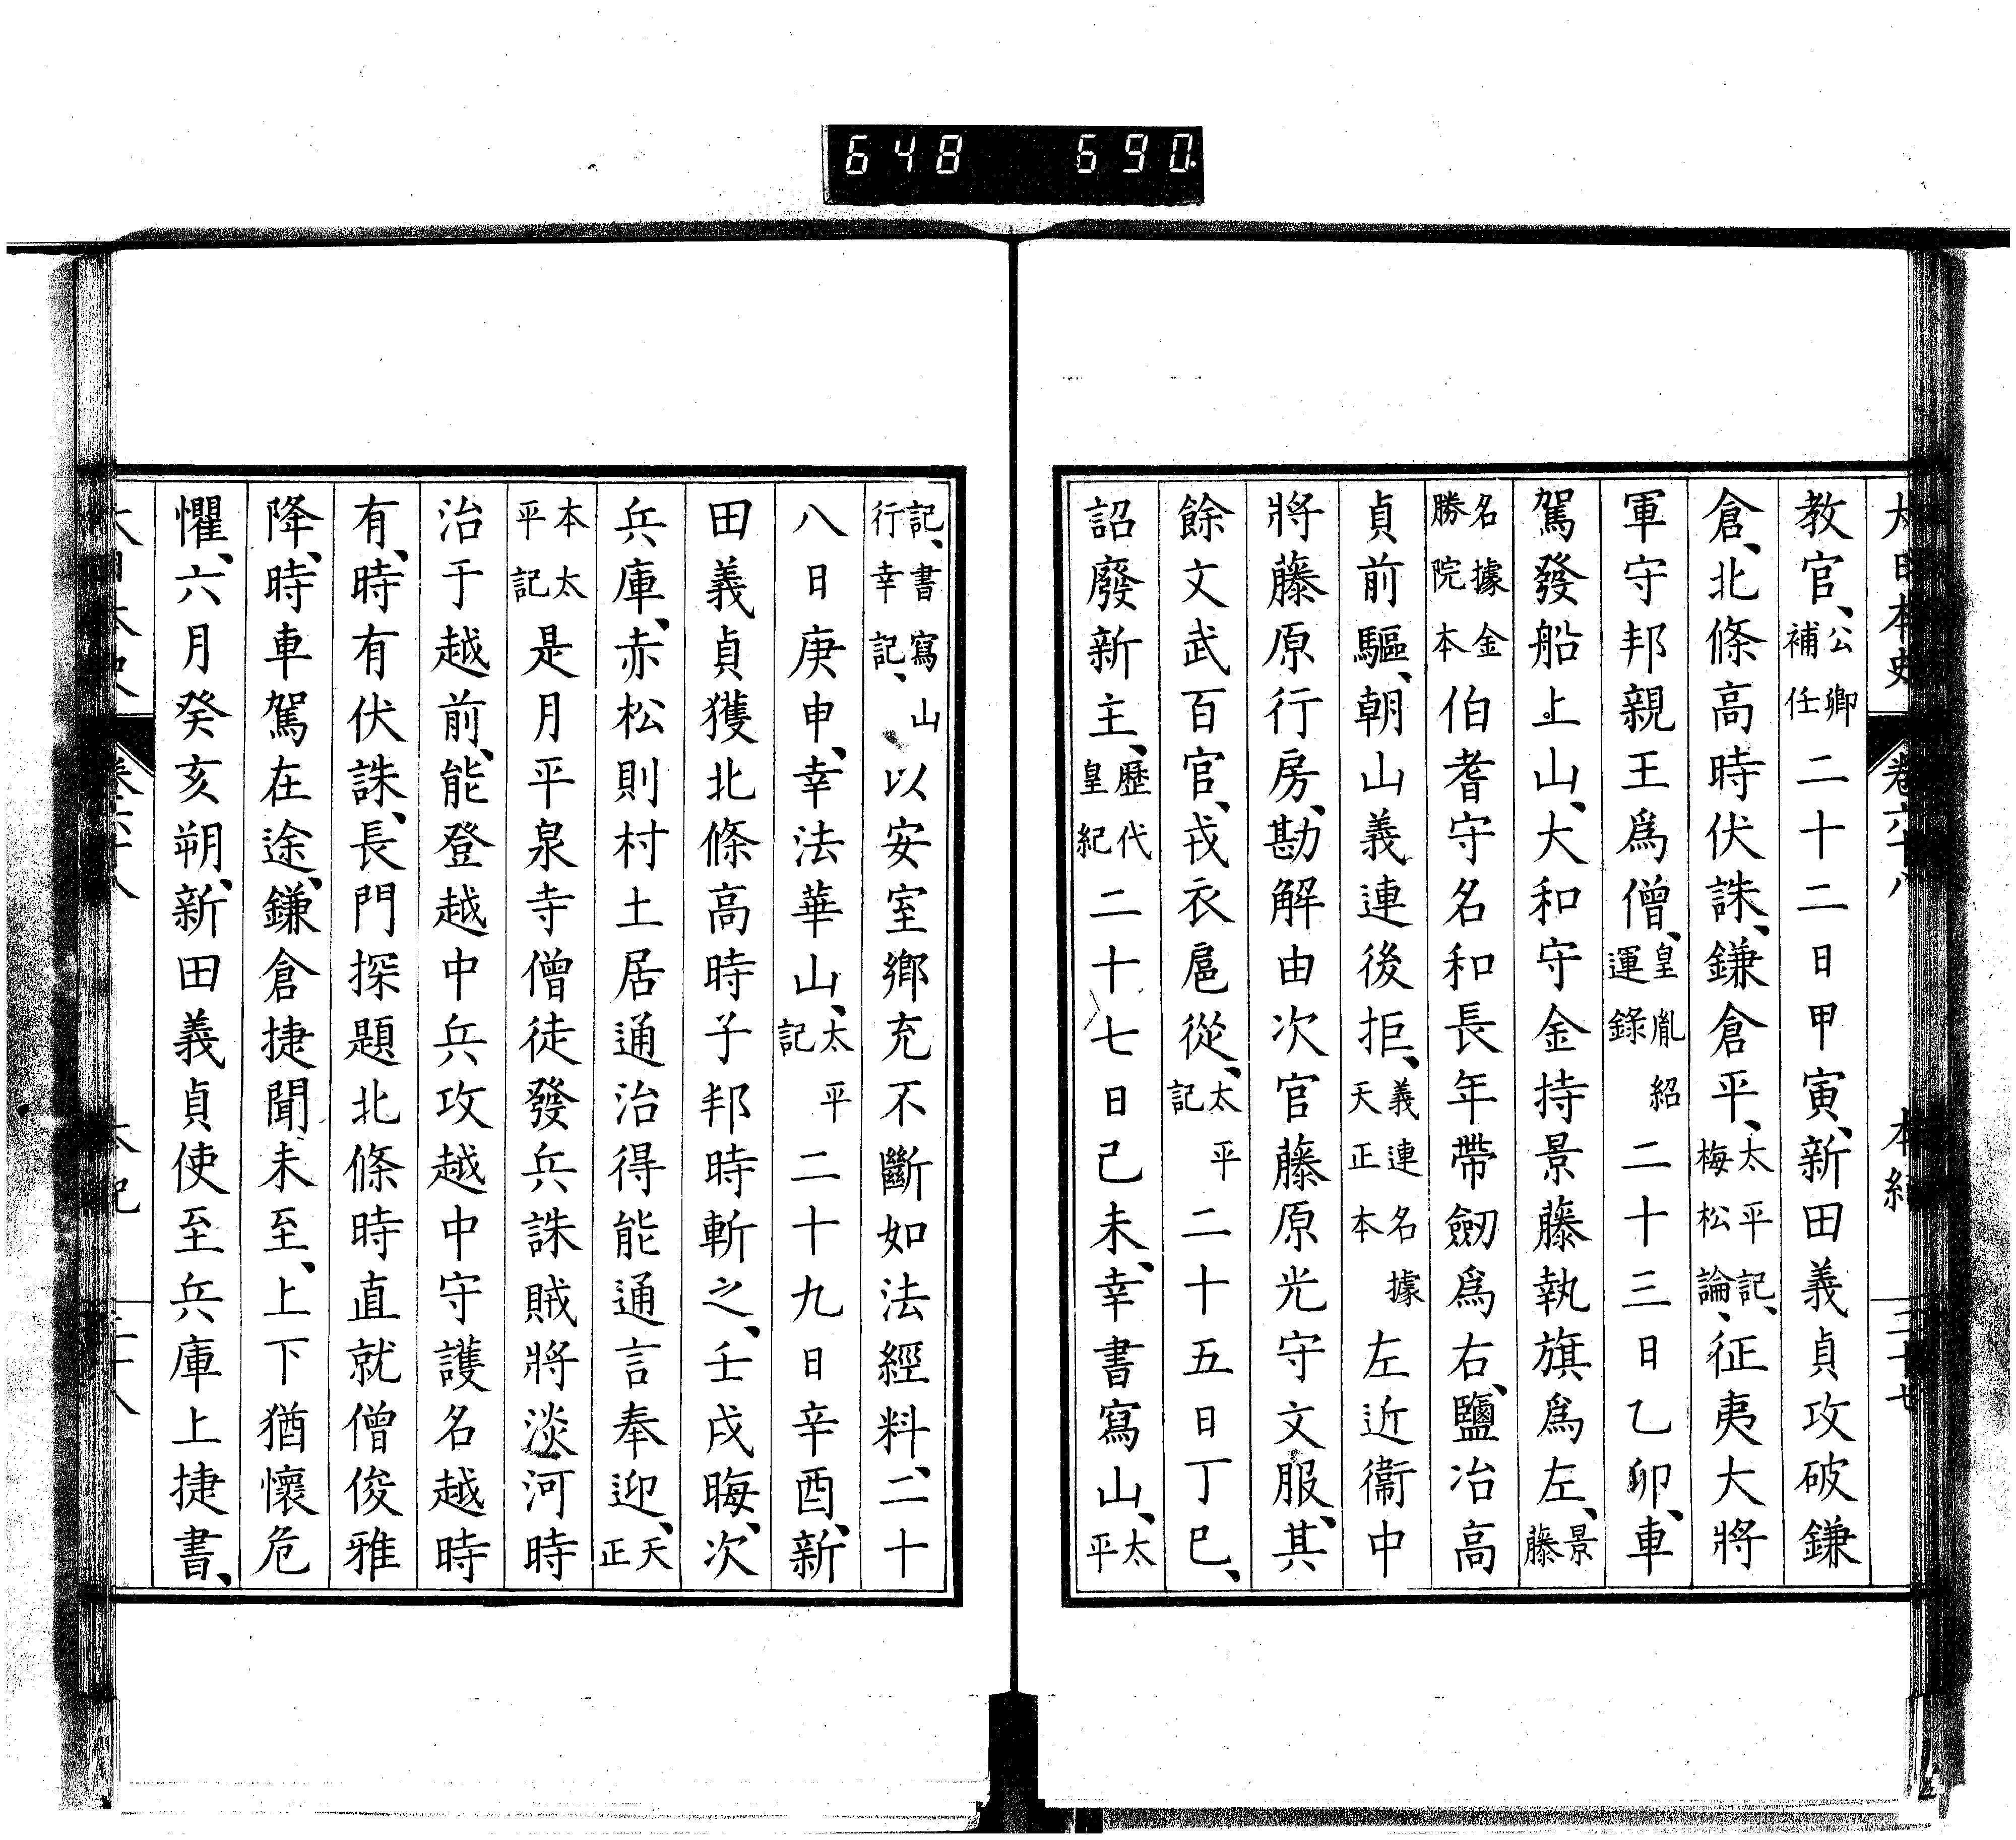 648 690
大日本史 卷六十八 本紀 二十七
教官、公卿補任二十二日甲寅、新田義貞攻破鎌
倉、北條高時伏誅、鎌倉平、太平記、梅松論、征夷大將
軍守邦親王爲僧、皇胤紹運錄二十三日乙卯、車
駕發船上山、大和守金持景藤執旗爲左、景藤
名據金勝院本伯耆守名和長年帶劒爲右、鹽冶高
貞前驅、朝山義連後拒、義連名據天正本左近衞中
將藤原行房、勘解由次官藤原光守文服、其
餘文武百官、戎衣扈從、太平記二十五日丁巳、
詔廢新主、歷代皇紀二十七日己未、幸書寫山、太平
記、書寫山行幸記、以安室鄉充不斷如法經料、二十
八日庚申、幸法華山、太平記二十九日辛酉、新
田義貞獲北條高時子邦時斬之、壬戌晦、次
兵庫、赤松則村土居通治得能通言奉迎、天正
本太平記是月平泉寺僧徒發兵誅賊將淡河時
治于越前、能登越中兵攻越中守護名越時
有、時有伏誅、長門探題北條時直就僧俊雅
降、時車駕在途、鎌倉捷聞未至、上下猶懷危
懼、六月癸亥朔、新田義貞使至兵庫上捷書、